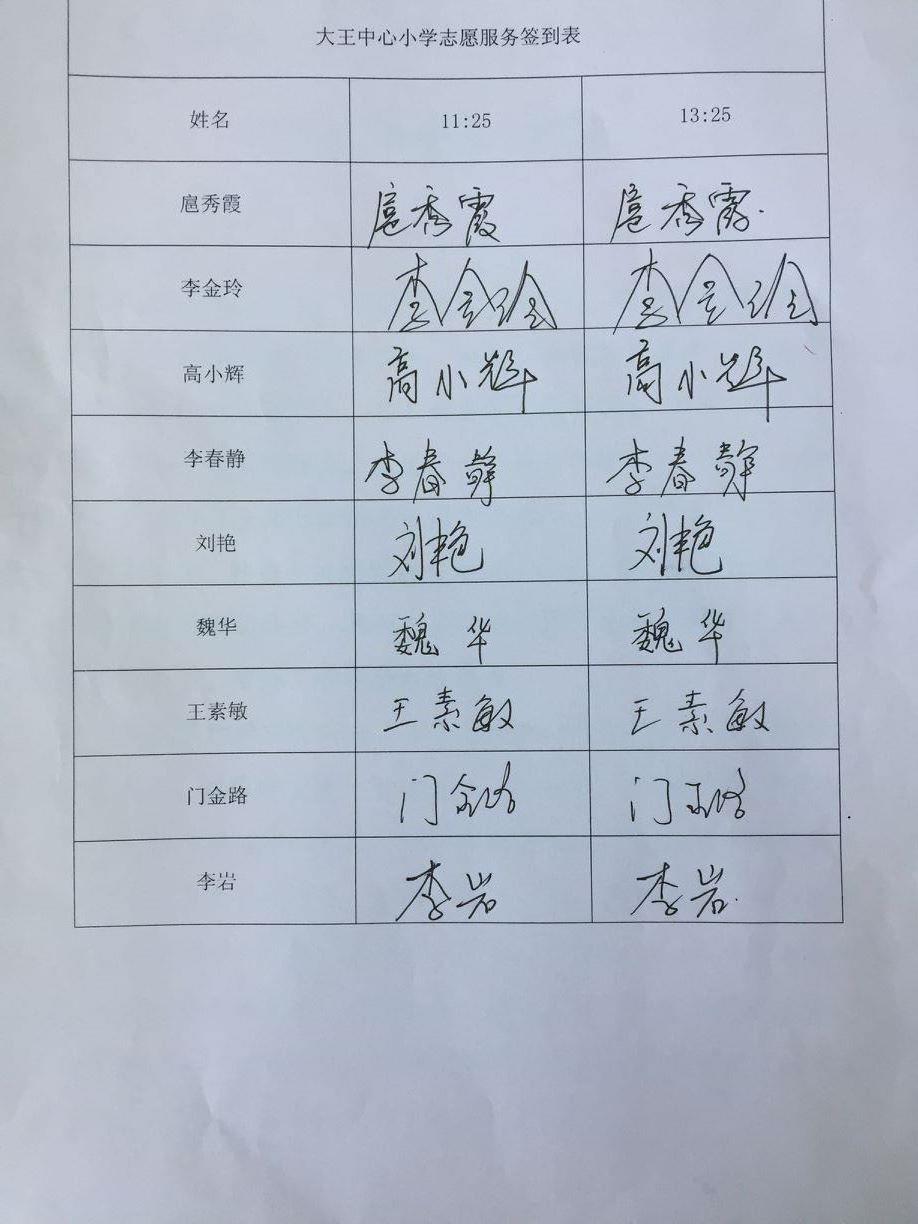 大王中心小学志愿服务签到表
姓名 11:25 13:25
扈秀霞 扈秀霞 扈秀霞
李金玲 李金玲 李金玲
高小辉 高小辉 高小辉
李春静 李春静 李春静
刘艳 刘艳 刘艳
魏华 魏华 魏华
王素敏 王素敏 王素敏
门金路 门金路 门金路
李岩 李岩 李岩